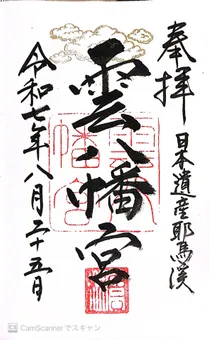 奉拝
日本遺産耶馬渓
雲八幡宮
令和七年八月二十五日
CamScannerでスキャン